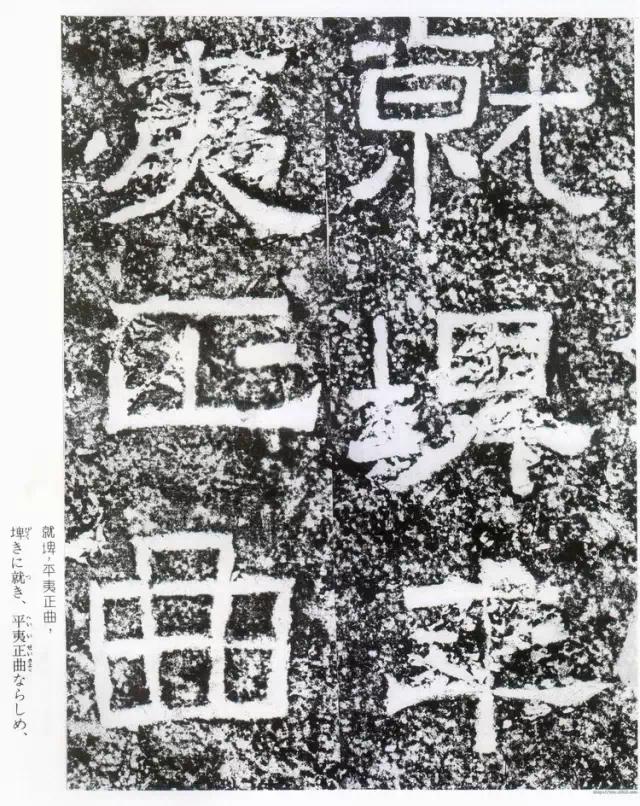 就埤平
夷正曲
就埤，平夷正曲，
埤きに就き、平夷正曲ならしめ、